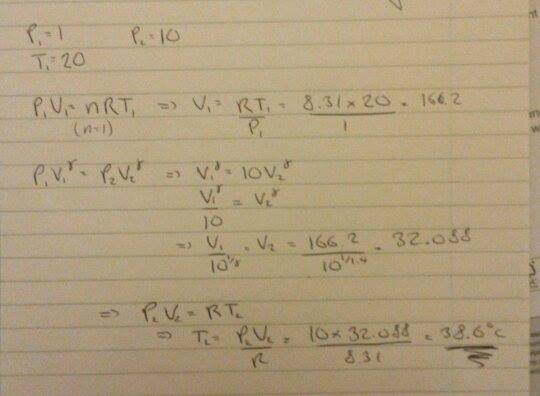 P₁=1 P₂=10
T₁=20
P₁V₁=nRT₁ => V₁= RT₁/P₁ = 8.31×20/1 = 166.2
(n=1)
P₁V₁^γ = P₂V₂^γ => V₁^γ = 10V₂^γ
V₁^γ/10 = V₂^γ
=> V₁/10^(1/γ) = V₂ = 166.2/10^(1/1.4) = 32.088
=> P₂V₂ = RT₂
=> T₂ = P₂V₂/R = 10×32.088/8.31 = 38.6°C